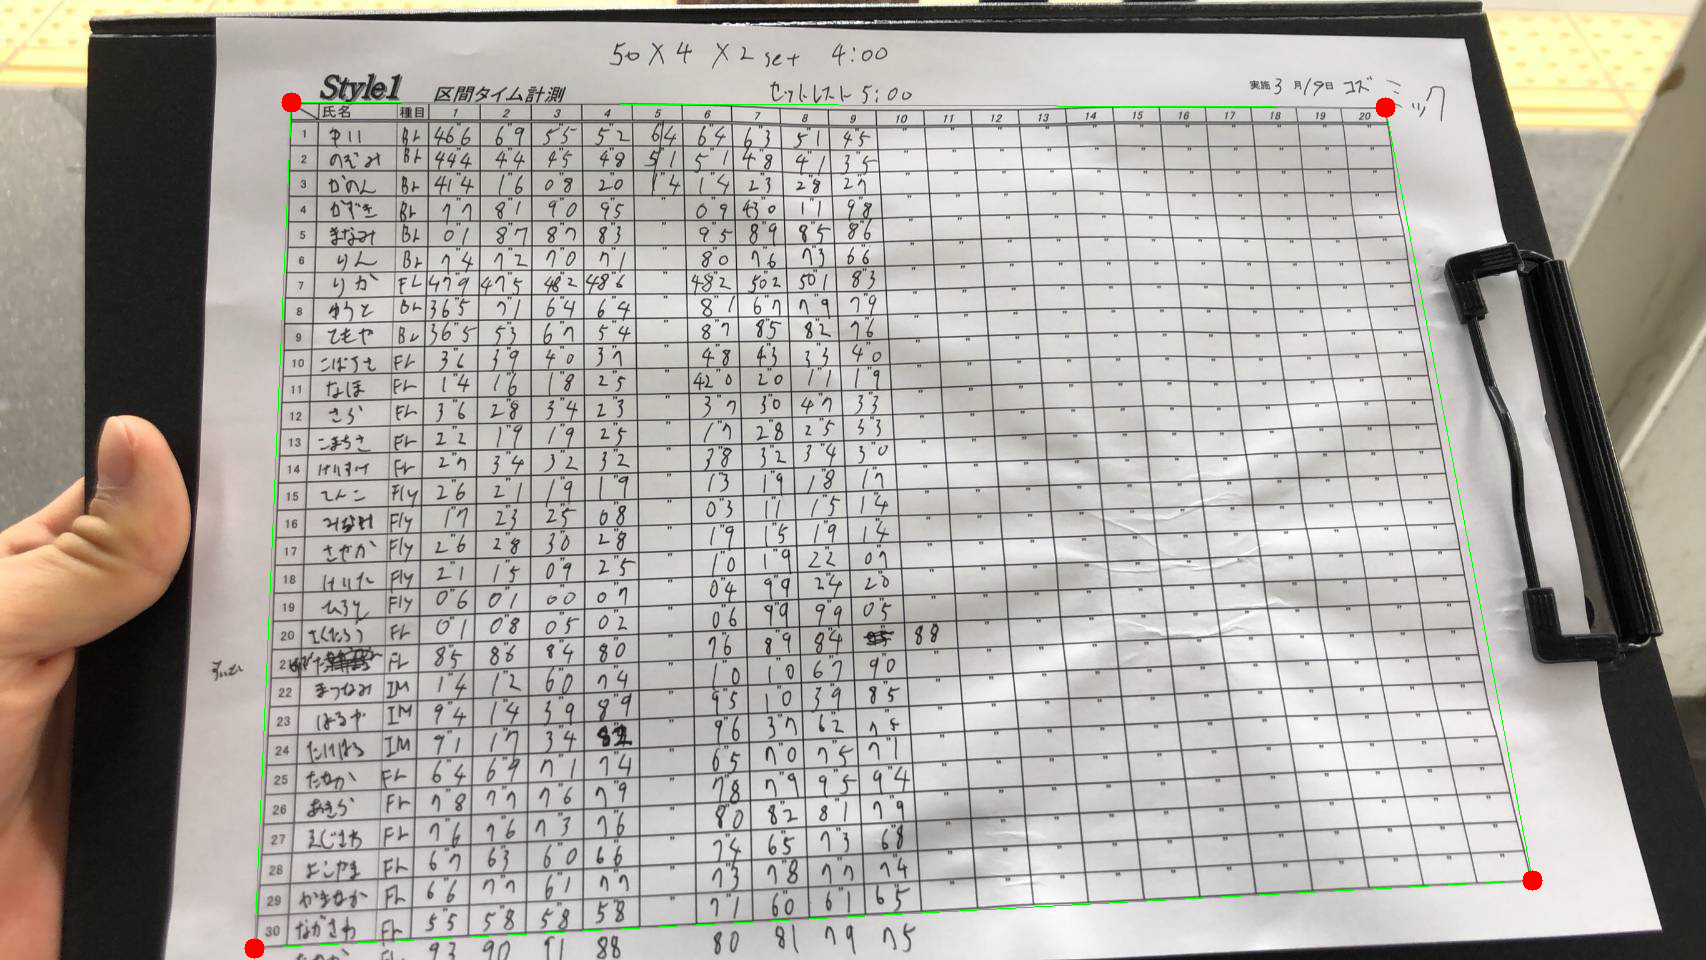 50 X 4 X 2 set 4:00
Style1 区間タイム計測 セットレスト 5:00 実施 3 月 19 日 コズミック
氏名 種目 1 2 3 4 5 6 7 8 9 10 11 12 13 14 15 16 17 18 19 20
1 Br 46"6 6"9 5"5 5"2 6"4 6"4 6"3 5"1 4"5
2 のぞみ Br 44"4 4"4 4"5 4"8 5"1 5"1 4"8 4"1 3"5
3 かのん Br 41"4 1"6 0"8 2"0 1"4 1"4 2"3 2"8 2"7
4 かずき Br 7"7 8"1 9"0 9"5 0"9 43"0 1"1 9"8
5 まなみ Br 0"1 8"7 8"7 8"3 9"5 8"9 8"5 8"6
6 りん Br 7"4 7"2 7"0 7"1 8"0 7"6 7"3 6"6
7 りか FL 47"9 47"5 48"2 48"6 48"2 50"2 50"1 8"3
8 ゆうと Br 36"5 7"1 6"4 6"4 8"1 6"7 7"9 7"9
9 ともや Br 36"5 5"3 6"7 5"4 8"7 8"5 8"2 7"6
10 Fr 3"6 3"9 4"0 3"7 4"8 4"3 3"3 4"0
11 なほ Fr 1"4 1"6 1"8 2"5 42"0 2"0 1"1 1"9
12 さら Fr 3"6 2"8 3"4 2"3 3"7 3"0 4"7 3"3
13 Fr 2"2 1"9 1"9 2"5 1"7 2"8 2"5 3"3
14 けいすけ Fr 2"7 3"4 3"2 3"2 3"8 3"2 3"4 3"0
15 Fly 2"6 2"1 1"9 1"9 1"3 1"9 1"8 1"7
16 みなみ Fly 1"7 2"3 2"5 0"8 0"3 1"1 1"5 1"4
17 さやか Fly 2"6 2"8 3"0 2"8 1"9 1"5 1"9 1"4
18 けいた Fly 2"1 1"5 0"9 2"5 1"0 1"9 2"2 0"7
19 ひろと Fly 0"6 0"1 0"0 0"7 0"4 9"9 2"4 2"0
20 さくたろう Fr 0"1 0"8 0"5 0"2 0"6 9"9 9"9 0"5
Fr 8"5 8"6 8"4 8"0 7"6 8"9 8"4 88
22 まつなみ IM 1"4 1"2 6"0 7"4 1"0 1"0 6"7 9"0
23 はるや IM 9"4 1"4 3"9 8"9 9"5 1"0 3"9 8"5
24 たけはる IM 9"1 1"7 3"4 9"6 3"7 6"2 7"5
25 たなか Fr 6"4 6"9 7"1 7"4 6"5 7"0 7"5 7"1
26 あきら Fr 7"8 7"7 7"6 7"9 7"8 7"9 9"5 9"4
27 Fr 7"6 7"6 7"3 7"6 8"0 8"2 8"1 7"9
28 よこやま Fr 6"7 6"3 6"0 6"6 7"4 6"5 7"3 6"8
29 Fr 6"6 7"7 6"1 7"7 7"3 7"8 7"7 7"4
30 ながさわ Fr 5"5 5"8 5"8 5"8 7"1 6"0 6"1 6"5
93 90 88 80 81 79 75